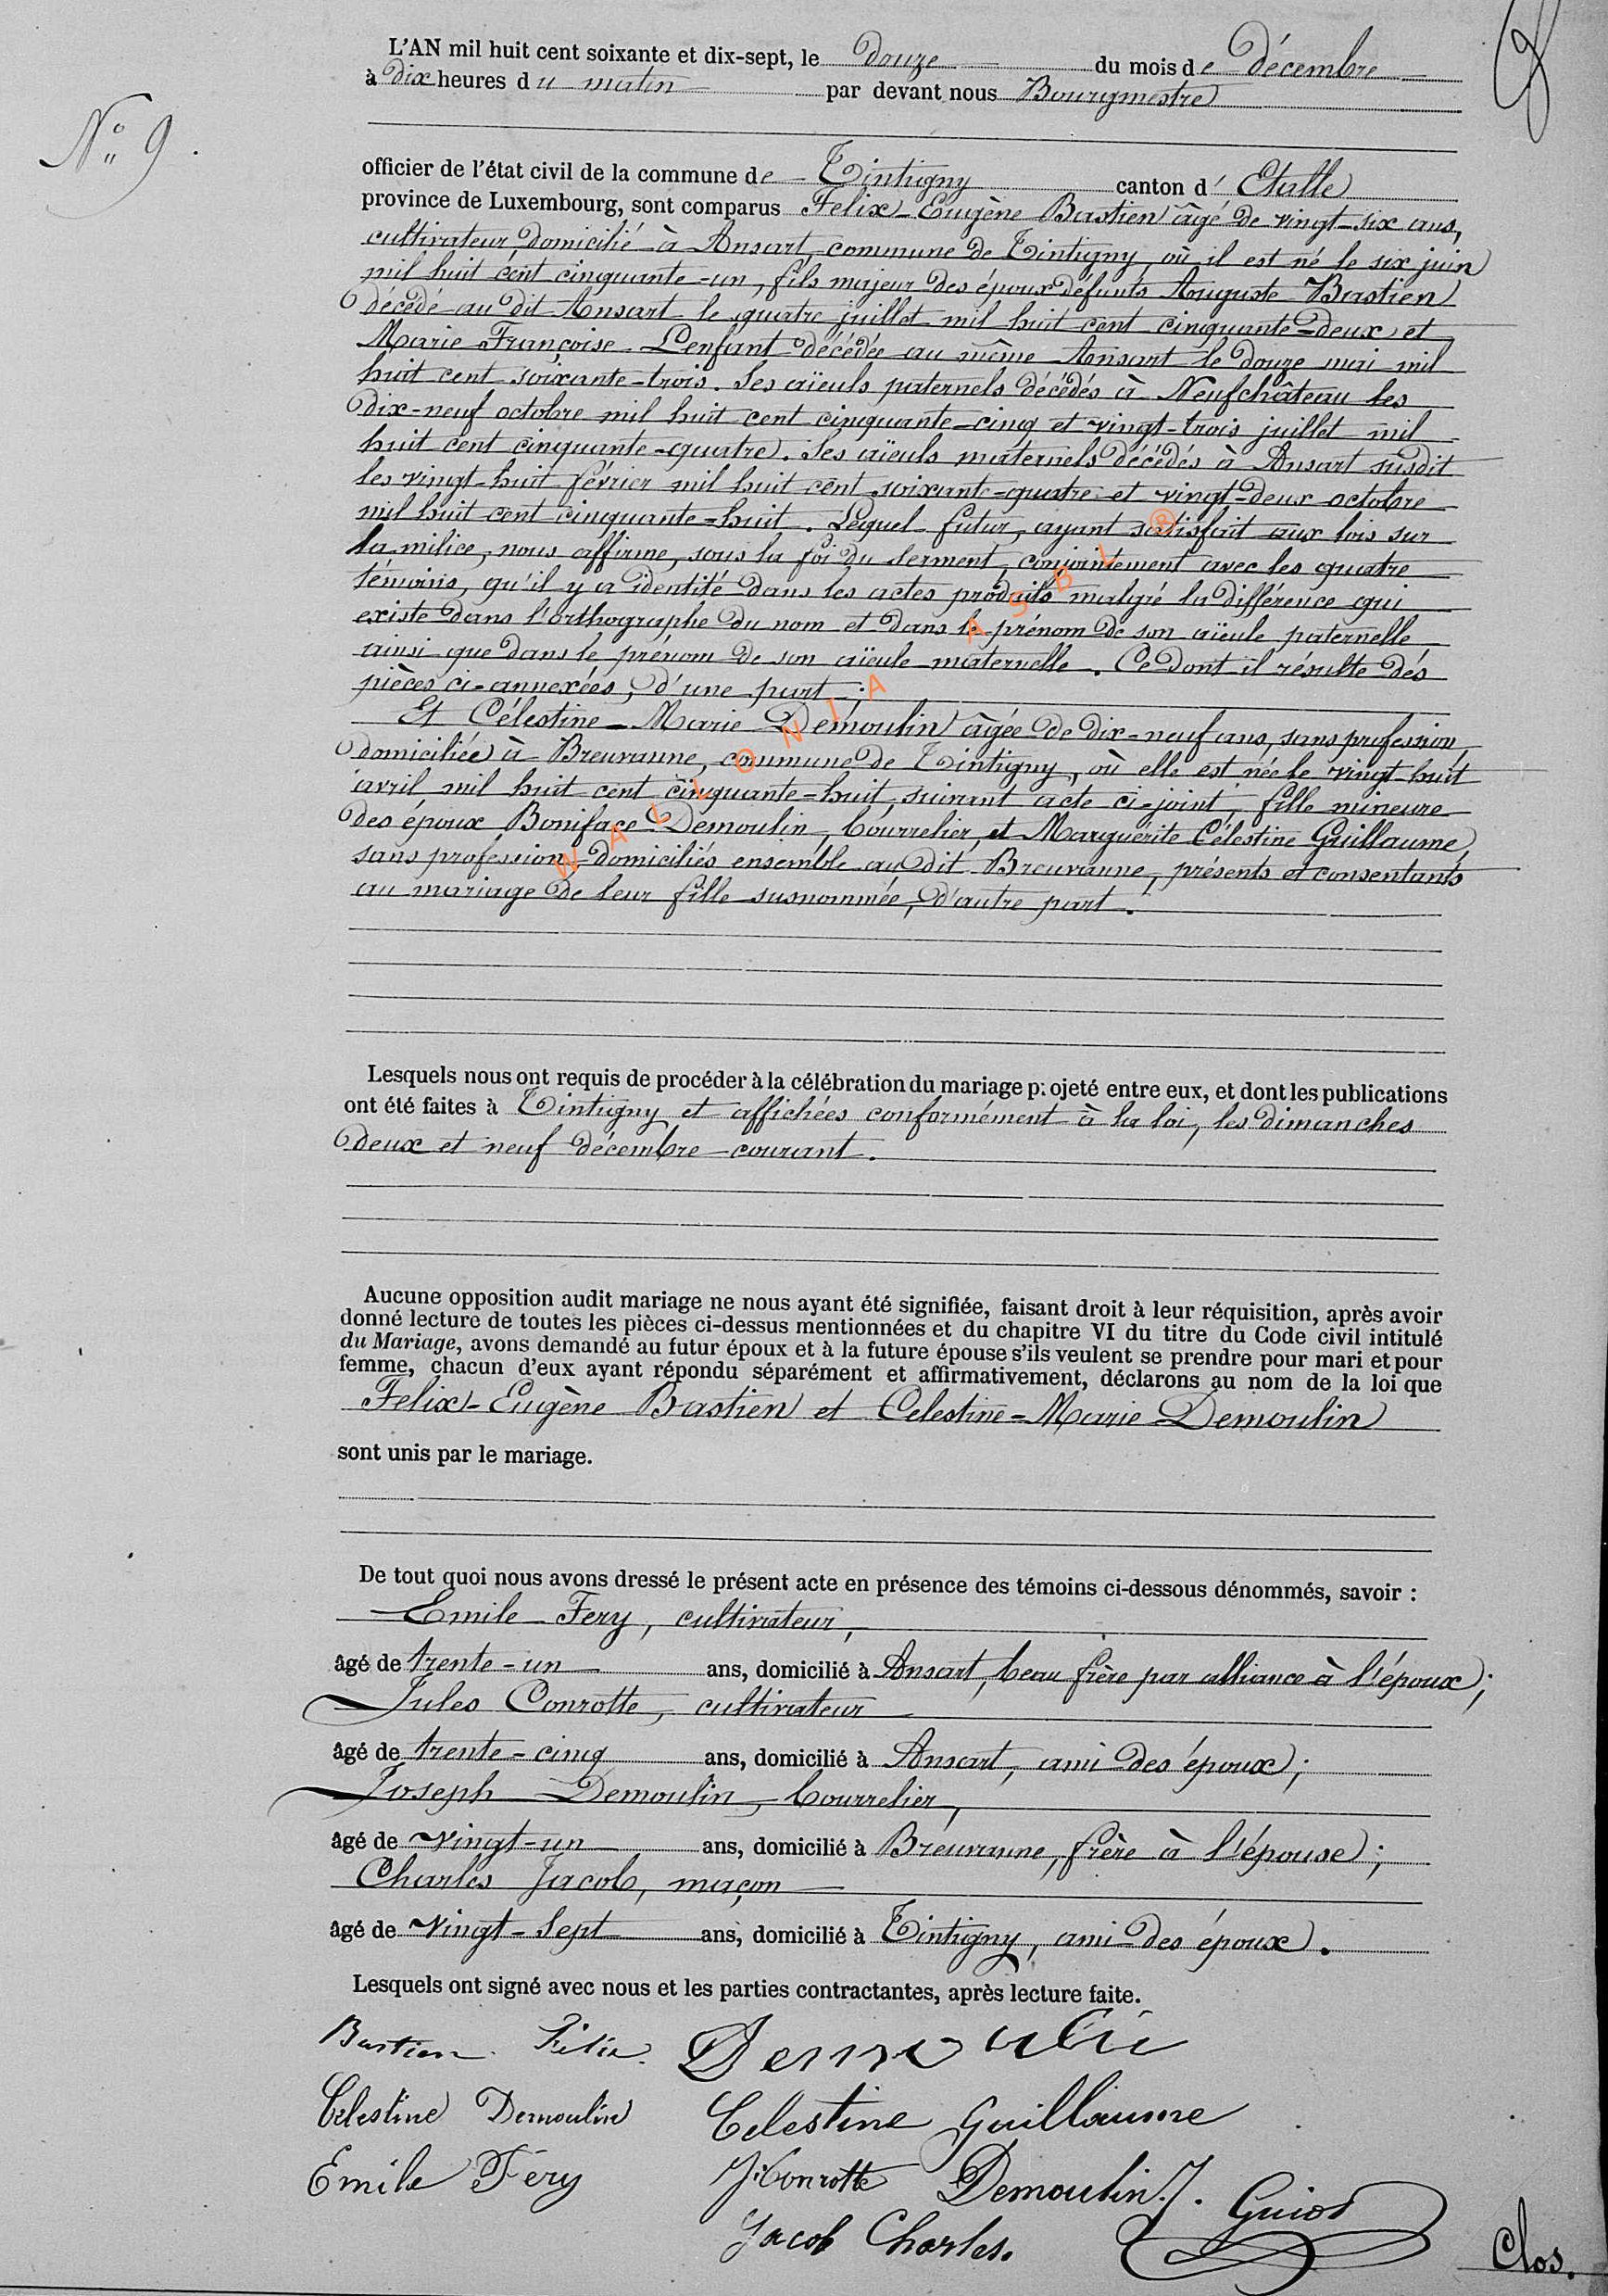 L'AN mil huit cent soixante et dix-sept, le douze du mois de Décembre
à dix heures du matin par devant nous Bourgmestre
N° 9.
officier de l'état civil de la commune de Tintigny canton d'Etalle
province de Luxembourg, sont comparus Felix-Eugène Bastien âgé de vingt-six ans,
cultivateur, domicilié à Ansart, commune de Tintigny, où il est né le six juin
mil huit cent cinquante-un, fils majeur des époux défunts Auguste Bastien
décédé au dit Ansart le quatre juillet mil huit cent cinquante-deux et
Marie Françoise Lenfant décédée au même Ansart le douze mai mil
huit cent soixante-trois. Ses aïeuls paternels décédés à Neufchâteau les
dix-neuf octobre mil huit cent cinquante-cinq et vingt-trois juillet mil
huit cent cinquante-quatre. Ses aïeuls maternels décédés à Ansart susdit
les vingt-huit février mil huit cent soixante-quatre et vingt-deux octobre
mil huit cent cinquante-huit. Lequel futur, ayant satisfait aux lois sur
la milice, nous affirme, sous la foi du serment, conjointement avec les quatre
témoins, qu'il y a identité dans les actes produits malgré la différence qui
existe dans l'orthographe du nom et dans le prénom de son aïeule paternelle
ainsi que dans le prénom de son aïeule maternelle. Ce dont il résulte des
pièces ci-annexées, d'une part;
Et Célestine-Marie Demoulin âgée de dix-neuf ans, sans profession,
domiciliée à Breuvanne, commune de Tintigny, où elle est née le vingt-huit
avril mil huit cent cinquante-huit, suivant acte ci-joint, fille mineure
des époux Boniface Demoulin, bourrelier, et Marguérite Célestine Guillaume,
sans profession, domiciliés ensemble au dit Breuvanne, présents et consentants
au mariage de leur fille susnommée, d'autre part.
WALLONIA ASBL ®
Lesquels nous ont requis de procéder à la célébration du mariage projeté entre eux, et dont les publications
ont été faites à Tintigny et affichées conformément à la loi, les dimanches
deux et neuf décembre courant.
Aucune opposition audit mariage ne nous ayant été signifiée, faisant droit à leur réquisition, après avoir
donné lecture de toutes les pièces ci-dessus mentionnées et du chapitre VI du titre du Code civil intitulé
du Mariage, avons demandé au futur époux et à la future épouse s'ils veulent se prendre pour mari et pour
femme, chacun d'eux ayant répondu séparément et affirmativement, déclarons au nom de la loi que
Felix-Eugène Bastien et Celestine-Marie Demoulin
sont unis par le mariage.
De tout quoi nous avons dressé le présent acte en présence des témoins ci-dessous dénommés, savoir :
Emile Fery, cultivateur,
âgé de trente-un ans, domicilié à Ansart, beau frère par alliance à l'époux;
Jules Conrotte, cultivateur
âgé de trente-cinq ans, domicilié à Ansart, ami des époux;
Joseph Demoulin, bourrelier,
âgé de vingt-un ans, domicilié à Breuvanne, frère à l'épouse;
Charles Jacob, maçon
âgé de vingt-sept ans, domicilié à Tintigny, ami des époux.
Lesquels ont signé avec nous et les parties contractantes, après lecture faite.
Bastien Félix. Demoulin
Célestine Demoulin Celestine Guillaume
Emile Féry J. Conrotte Demoulin. J. Guiot
Jacob Charles.
Clos.